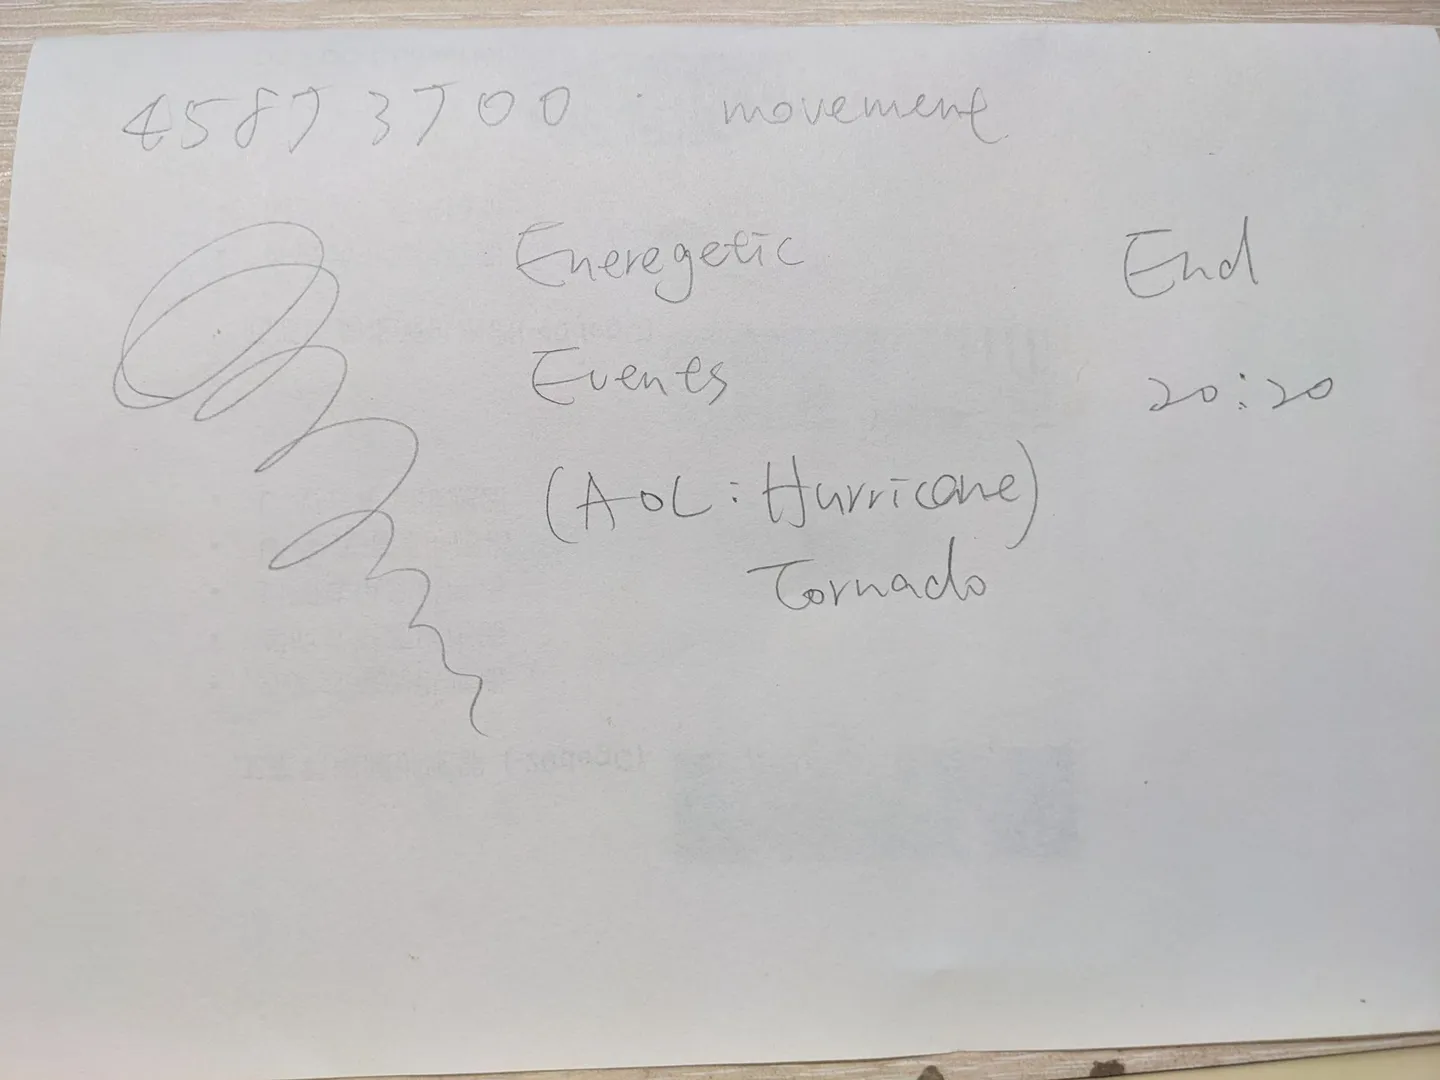 45873700 movement
Eneregetic
Events
(AOL: Hurricane)
Tornado
End
20:20